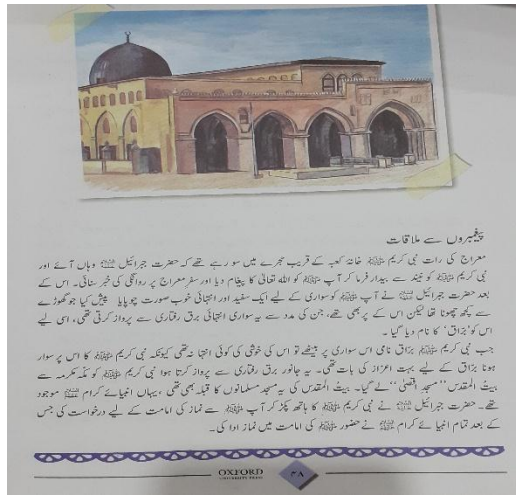 پیغمبروں سے ملاقات
معراج کی رات نبی کریم ﷺ خانۂ کعبہ کے قریب حجرے میں سو رہے تھے کہ حضرت جبرائیل علیہ السلام وہاں آئے اور
نبی کریم ﷺ کو نیند سے بیدار فرما کر آپ ﷺ کو اللہ تعالیٰ کا پیغام دیا اور سفرِ معراج پر روانگی کی خبر سنائی۔ اس کے
بعد حضرت جبرائیل علیہ السلام نے آپ ﷺ کو سواری کے لیے ایک سفید اور انتہائی خوب صورت چوپایا پیش کیا جو گھوڑے
سے کچھ چھوٹا تھا لیکن اس کے پر بھی تھے، جن کی مدد سے یہ سواری انتہائی برق رفتاری سے پرواز کرتی تھی، اسی لیے
اس کو 'بُراق' کا نام دیا گیا۔
جب نبی کریم ﷺ بُراق نامی اس سواری پر بیٹھے تو اس کی خوشی کی کوئی انتہا نہ تھی کیونکہ نبی کریم ﷺ کا اس پر سوار
ہونا بُراق کے لیے بہت اعزاز کی بات تھی۔ یہ جانور برق رفتاری سے پرواز کرتا ہوا نبی کریم ﷺ کو مکّہ مکرمہ سے
بیت المقدس "مسجدِ اقصیٰ" لے گیا۔ بیت المقدس کی یہ مسجد مسلمانوں کا قبلہ بھی تھی، یہاں انبیائے کرام علیہم السلام موجود
تھے۔ حضرت جبرائیل علیہ السلام نے نبی کریم ﷺ کا ہاتھ پکڑ کر آپ ﷺ سے نماز کی امامت کے لیے درخواست کی جس
کے بعد تمام انبیائے کرام علیہم السلام نے حضور ﷺ کی امامت میں نماز ادا کی۔
OXFORD
UNIVERSITY PRESS
۳۸